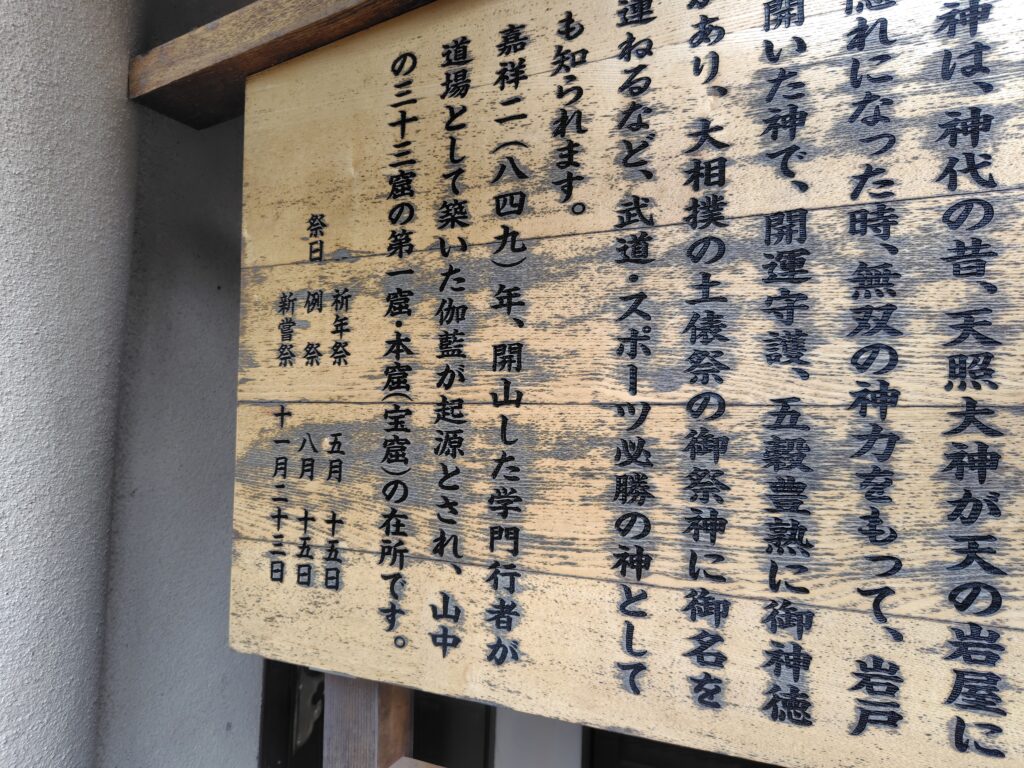 神は、神代の昔、天照大神が天の岩屋に
隠れになった時、無双の神力をもって、岩戸
開いた神で、開運守護、五穀豊熟に御神徳
があり、大相撲の土俵祭の御祭神に御名を
連ねるなど、武道・スポーツ必勝の神として
も知られます。
嘉祥二(八四九)年、開山した学門行者が
道場として築いた伽藍が起源とされ、山中
の三十三窟の第一窟・本窟(宝窟)の在所です。
祈年祭 五月 十五日
祭日 例祭 八月 十五日
新嘗祭 十一月二十三日